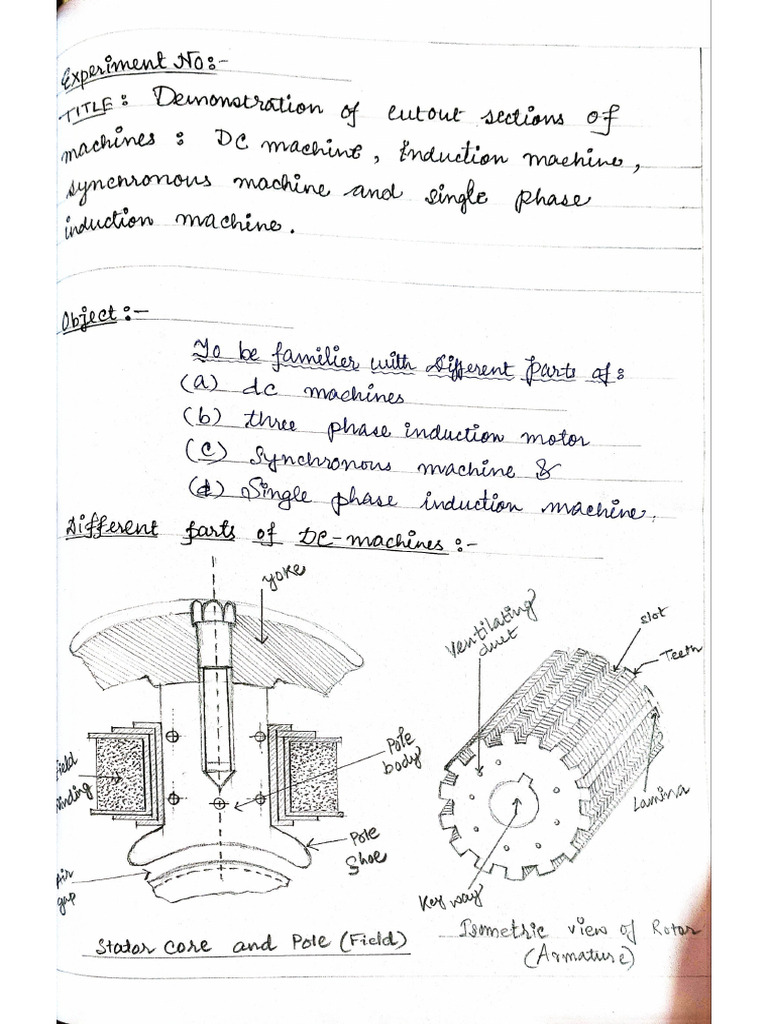 Experiment No:-
TITLE: Demonstration of cutout sections of
machines: DC machine, Induction machine,
synchronous machine and single phase
induction machine.
Object:-
To be familier with Different Parts of:
(a) dc machines
(b) three phase induction motor
(c) Synchronous machine &
(d) Single phase induction machine.
Different parts of DC-machines:-
yoke
Field
winding
Pole
body
Pole
Shoe
Air
gap
Stator core and Pole (Field)
Ventilating
duct
slot
Teeth
Lamina
Key way
Isometric view of Rotor
(Armature)